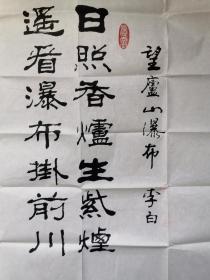 望廬山瀑布 李白
日照香爐生紫煙
遥看瀑布掛前川